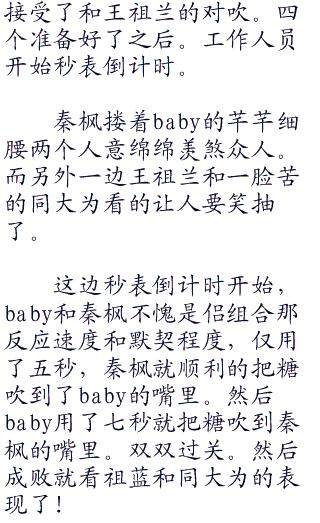 接受了和王祖兰的对吹。四
个准备好了之后。工作人员
开始秒表倒计时。
秦枫搂着baby的芊芊细
腰两个人意绵绵羡煞众人。
而另外一边王祖兰和一脸苦
的同大为看的让人要笑抽
了。
这边秒表倒计时开始，
baby和秦枫不愧是侣组合那
反应速度和默契程度，仅用
了五秒，秦枫就顺利的把糖
吹到了baby的嘴里。然后
baby用了七秒就把糖吹到秦
枫的嘴里。双双过关。然后
成败就看祖蓝和同大为的表
现了！